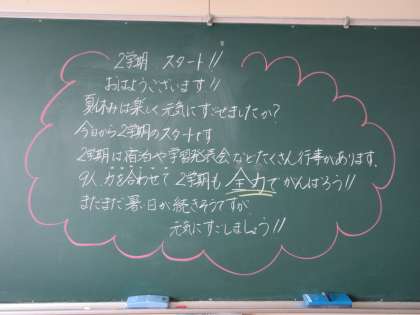 2学期 スタート!!
おはようございます!!
夏休みは楽しく元気にすごせましたか?
今日から2学期のスタートです
2学期は宿泊や学習発表会などたくさん行事があります。
9人、力を合わせて2学期も全力でがんばろう!!
まだまだ暑い日が続きそうですが、
元気にすごしましょう!!